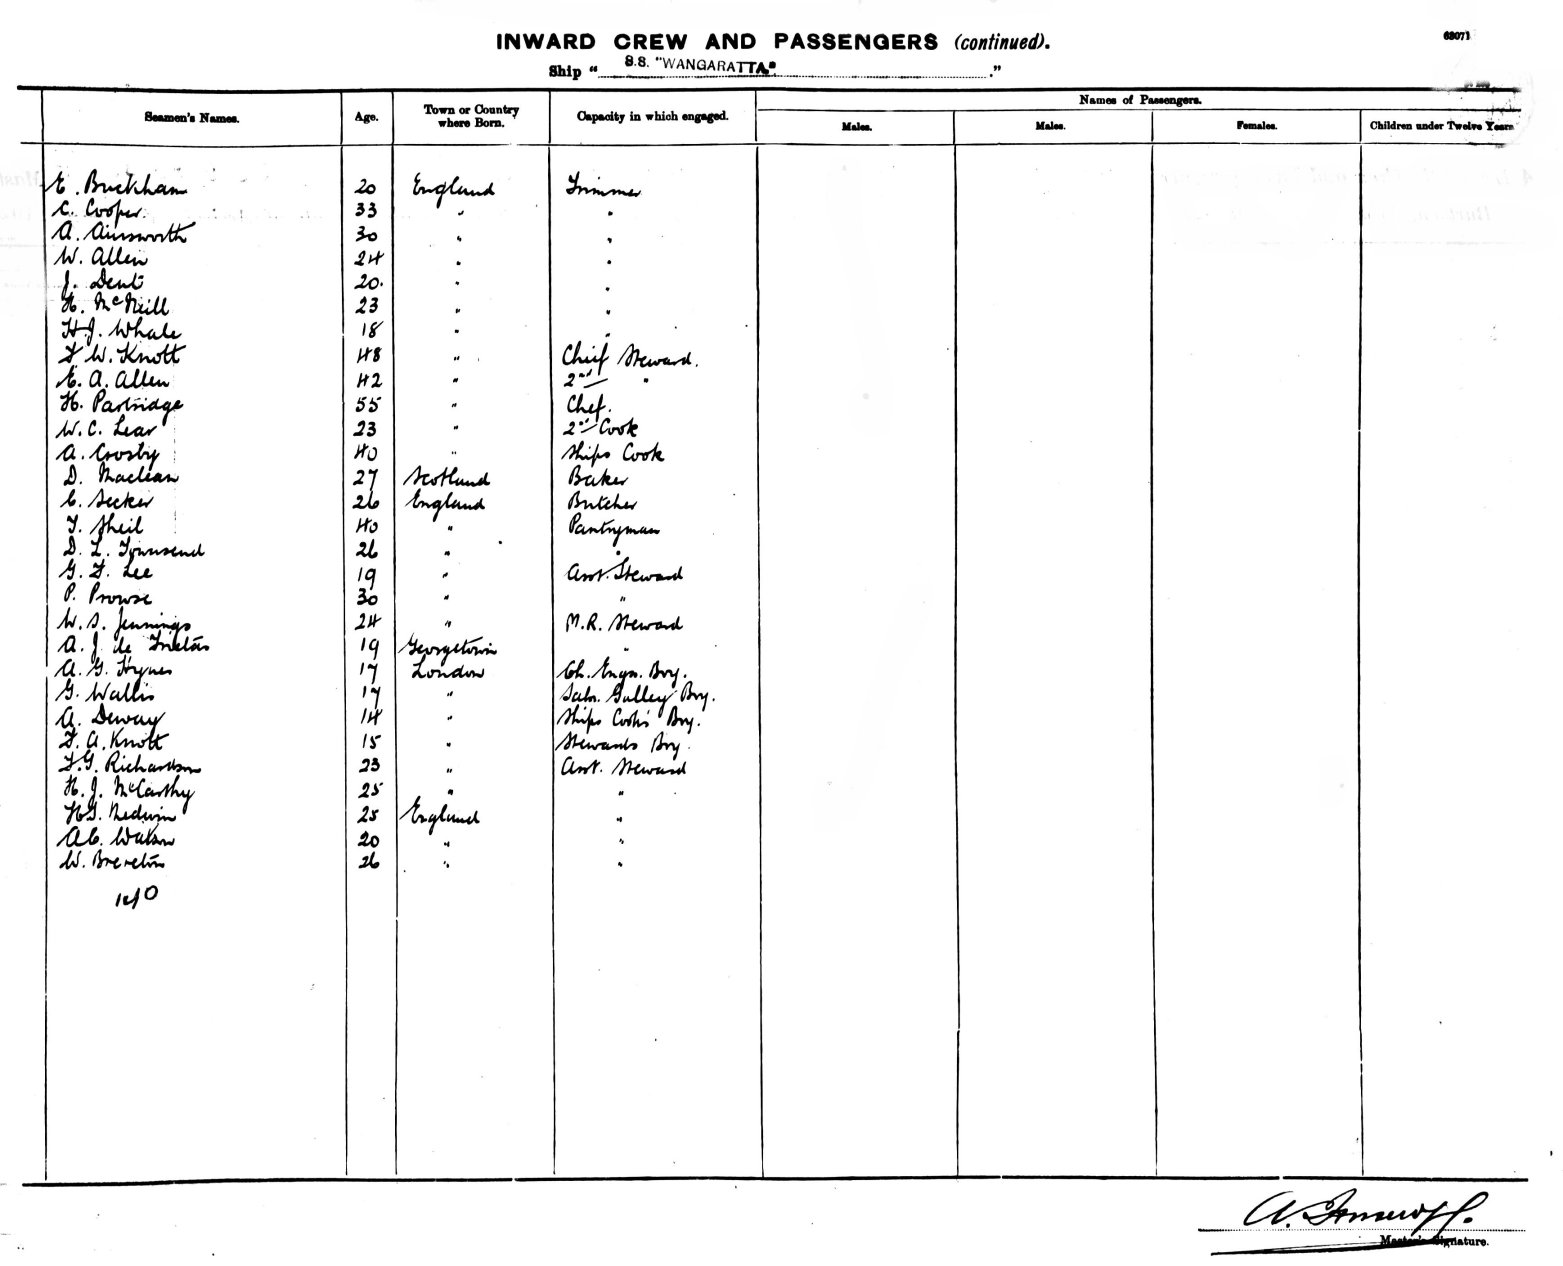 INWARD CREW AND PASSENGERS (continued).
68071
Ship " S.S. "WANGARATTA" ."
Names of Passengers.
Seamen's Names. Age. Town or Country where Born. Capacity in which engaged. Males. Males. Females. Children under Twelve Years
E. Buckham 20 England Trimmer
C. Cooper. 33 " "
A. Ainsworth 30 " "
W. Allen 24 " "
J. Dent 20. " "
H. McNeill 23 " "
H.J. Whale 18 " "
F W. Knott 48 " Chief Steward.
E. A. Allen 42 " 2nd "
H. Partridge 55 " Chef.
W. C. Lear 23 " 2nd Cook
A. Crosby 40 " Ships Cook
D. Maclean 27 Scotland Baker
C. Secker 26 England Butcher
T. Sheil 40 " Pantryman
D. L. Townsend 26 " "
G. F. Lee 19 " Asst. Steward
P. Prowse 30 " "
W. S. Jennings 24 " M.R. Steward
A. J. de 19 Georgetown "
A. G. Hynes 17 London Ch. Engn. Boy.
G. Wallis 17 " Saln. Galley Boy.
A. Dewey 14 " Ships Cook's Boy.
F. A. Knott 15 " Stewards Boy.
F.G. Richardson 23 " Asst. Steward
H. J. McCarthy 25 " "
Medwin 25 England "
A.C. Watson 20 " "
W. Brereton 26 " "
A.
Master's Signature.